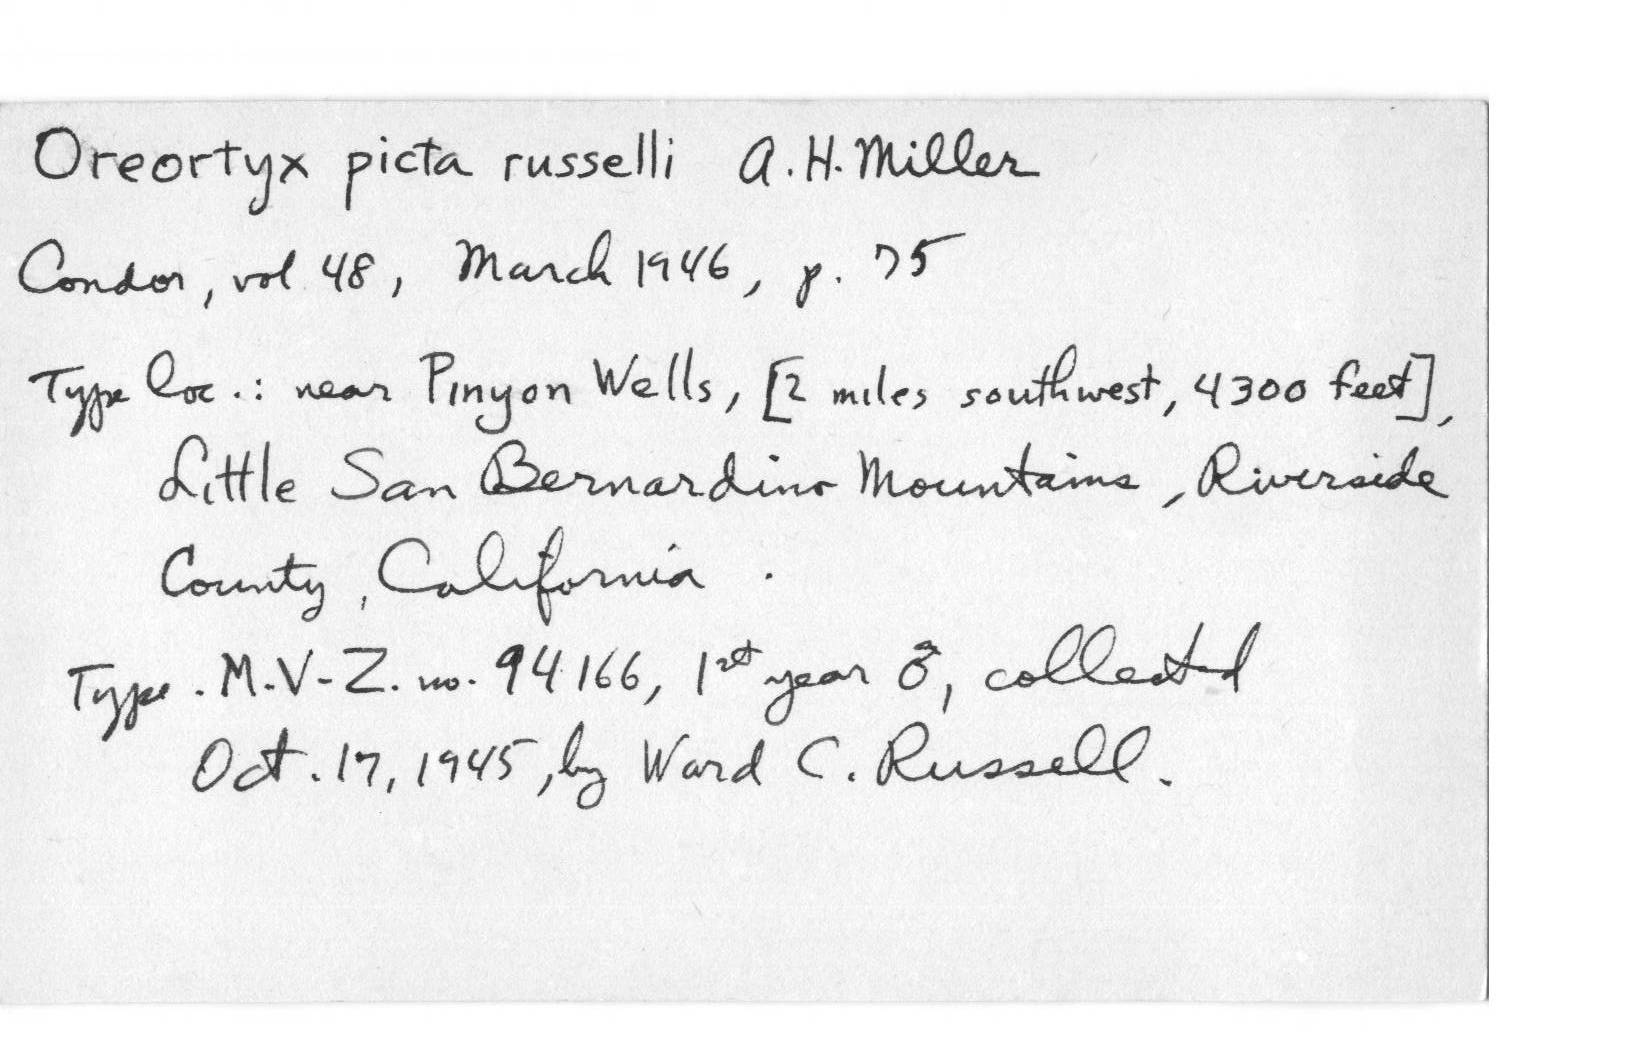 Oreortyx picta russelli A.H. Miller
Condor, vol 48, March 1946, p. 75
Type loc.: near Pinyon Wells, [2 miles southwest, 4300 feet],
Little San Bernardino Mountains, Riverside
County, California.
Type. M.V-Z. no. 94166, 1st year ♂, collected
Oct. 17, 1945, by Ward C. Russell.